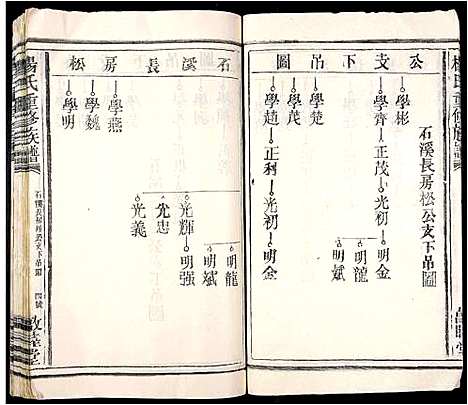 公支下吊圖
石溪長房松公支下吊圖
學彬
學齊 正茂 光初 明金
明龍
明斌
學楚
學趙 正利 光初 明金
石溪長房松
學燕
學魏
學明
明龍
明斌
光輝 明強
光忠
光義
楊氏重修族譜
石溪長房松公支下吊圖
四號
敦睦堂